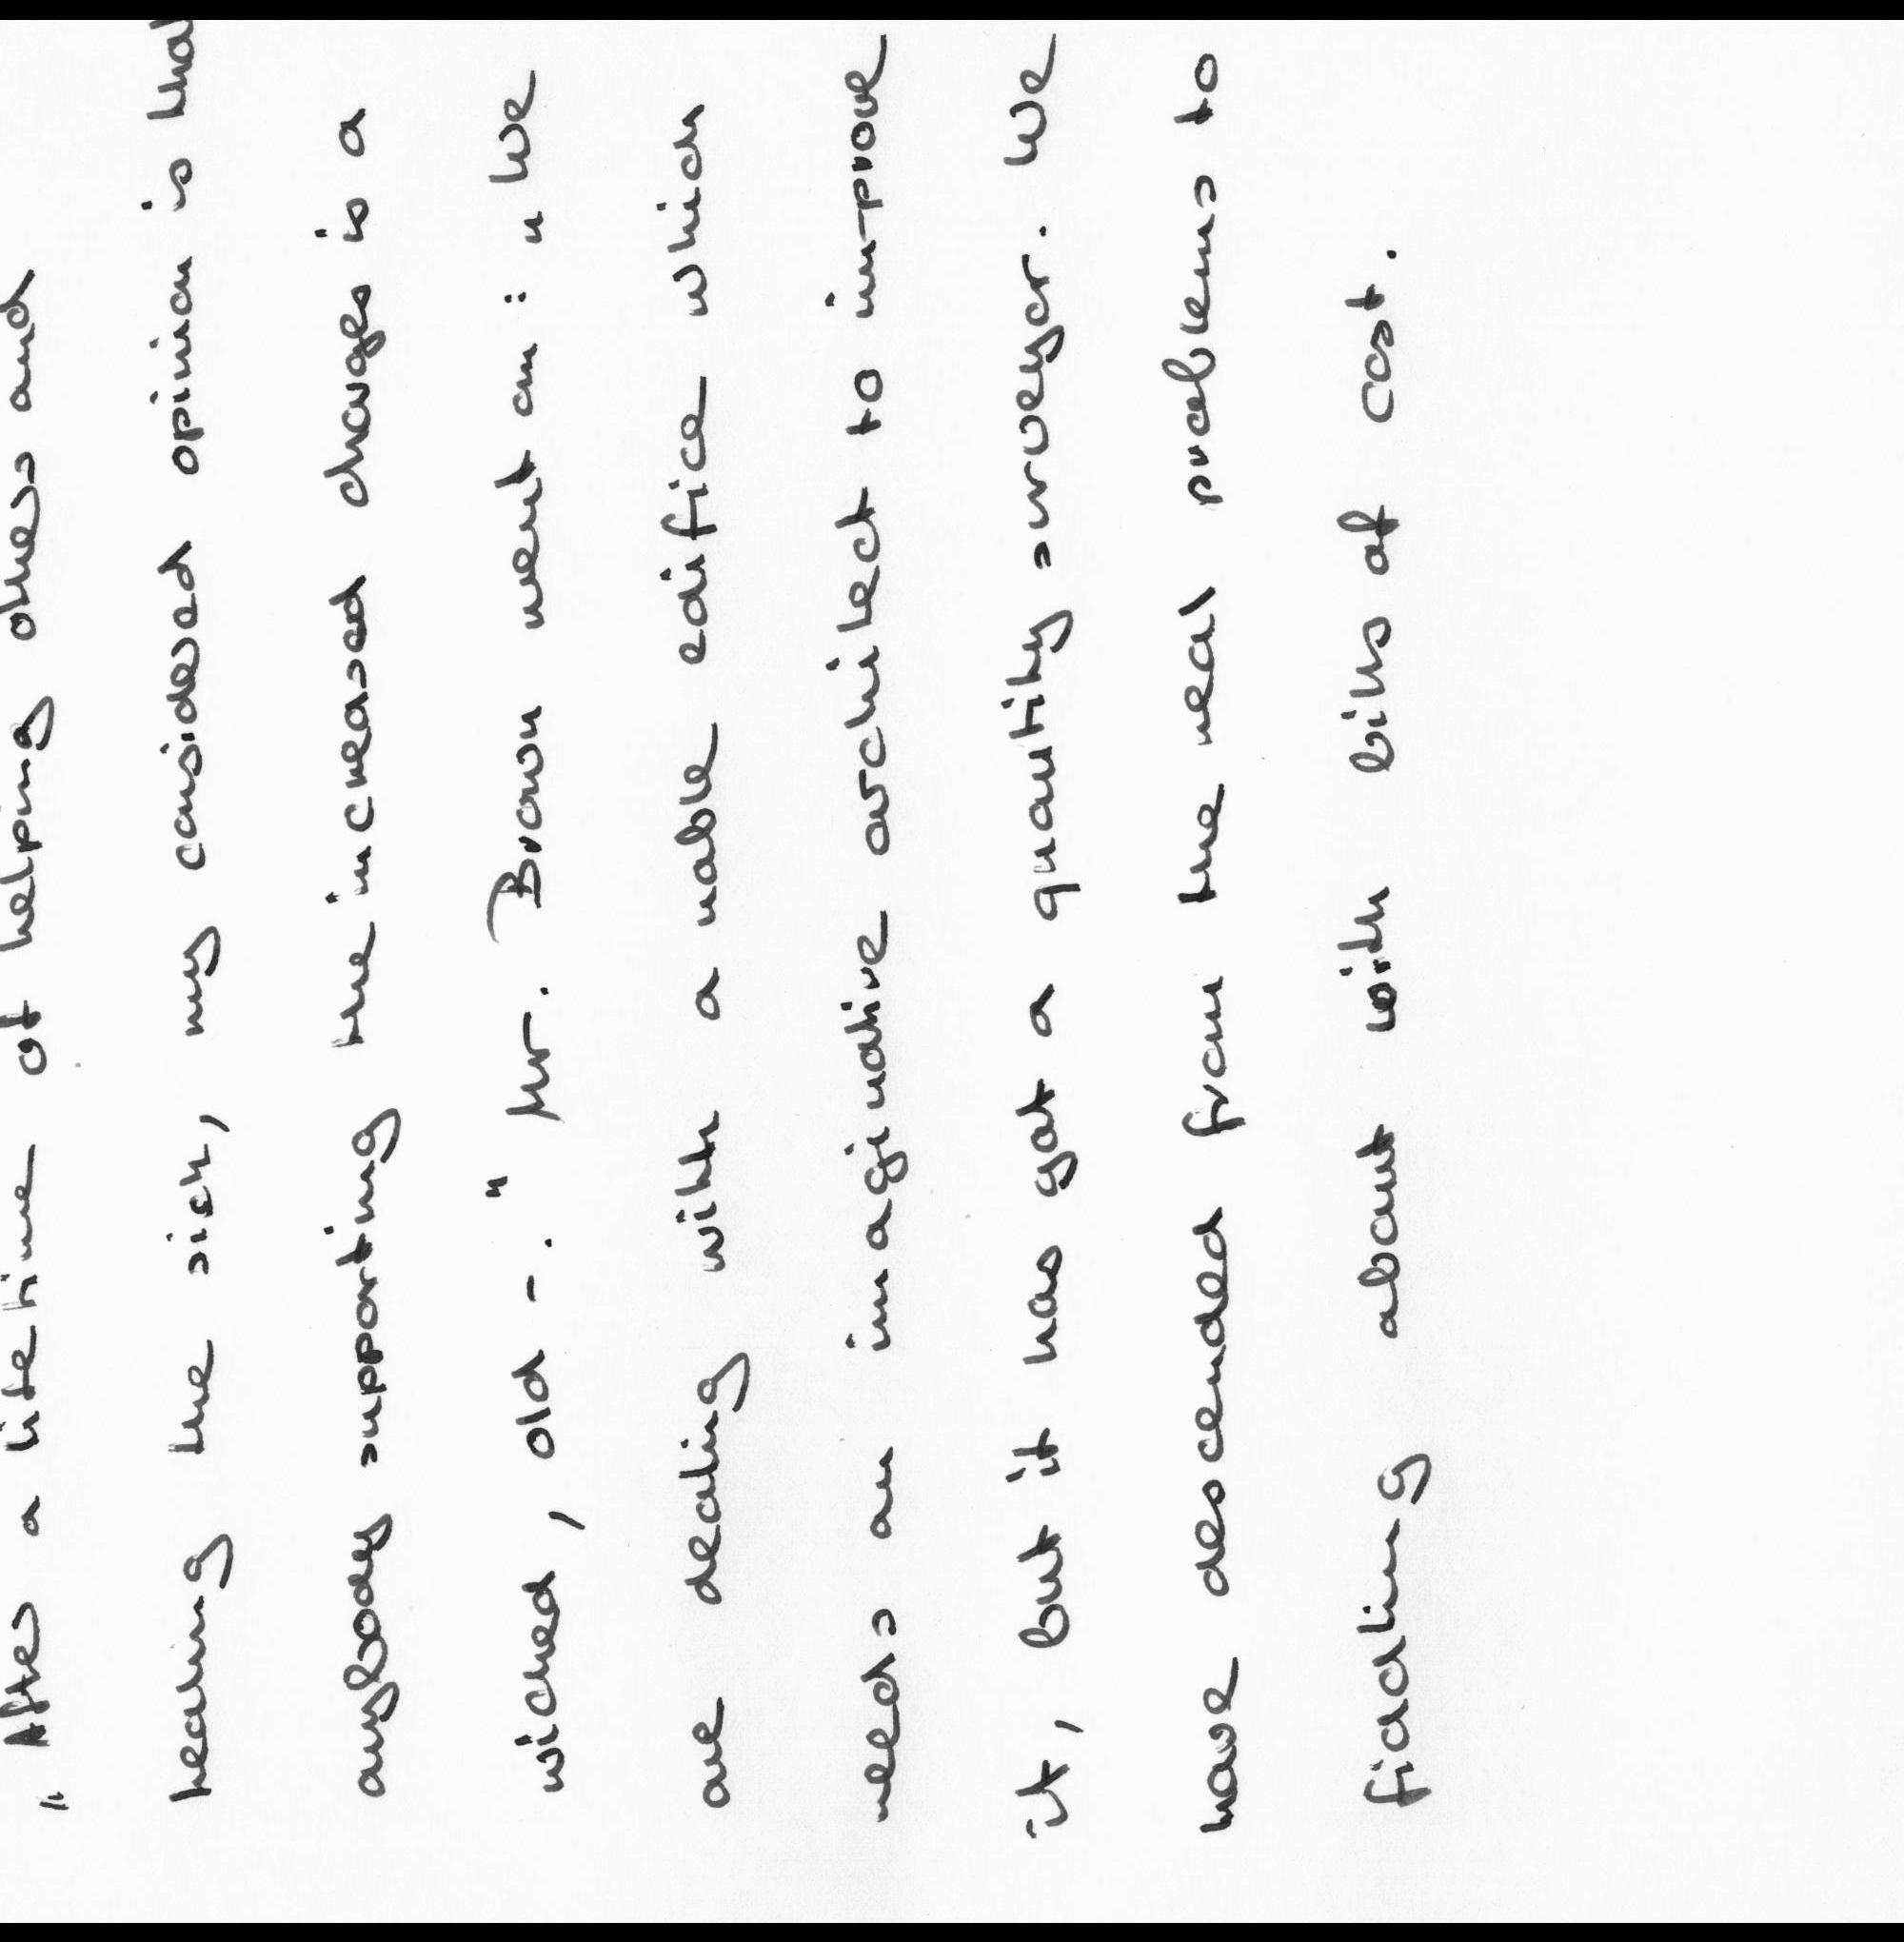 "After a lifetime of helping others and
healing the sick, my considered opinion is that
anybody supporting the increased charges is a
wicked, old -." Mr. Brown went on: "We
are dealing with a noble edifice which
needs an imaginative architect to improve
it, but it has got a quantity surveyor. We
have descended from the real problems to
fiddling about with bills of cost.